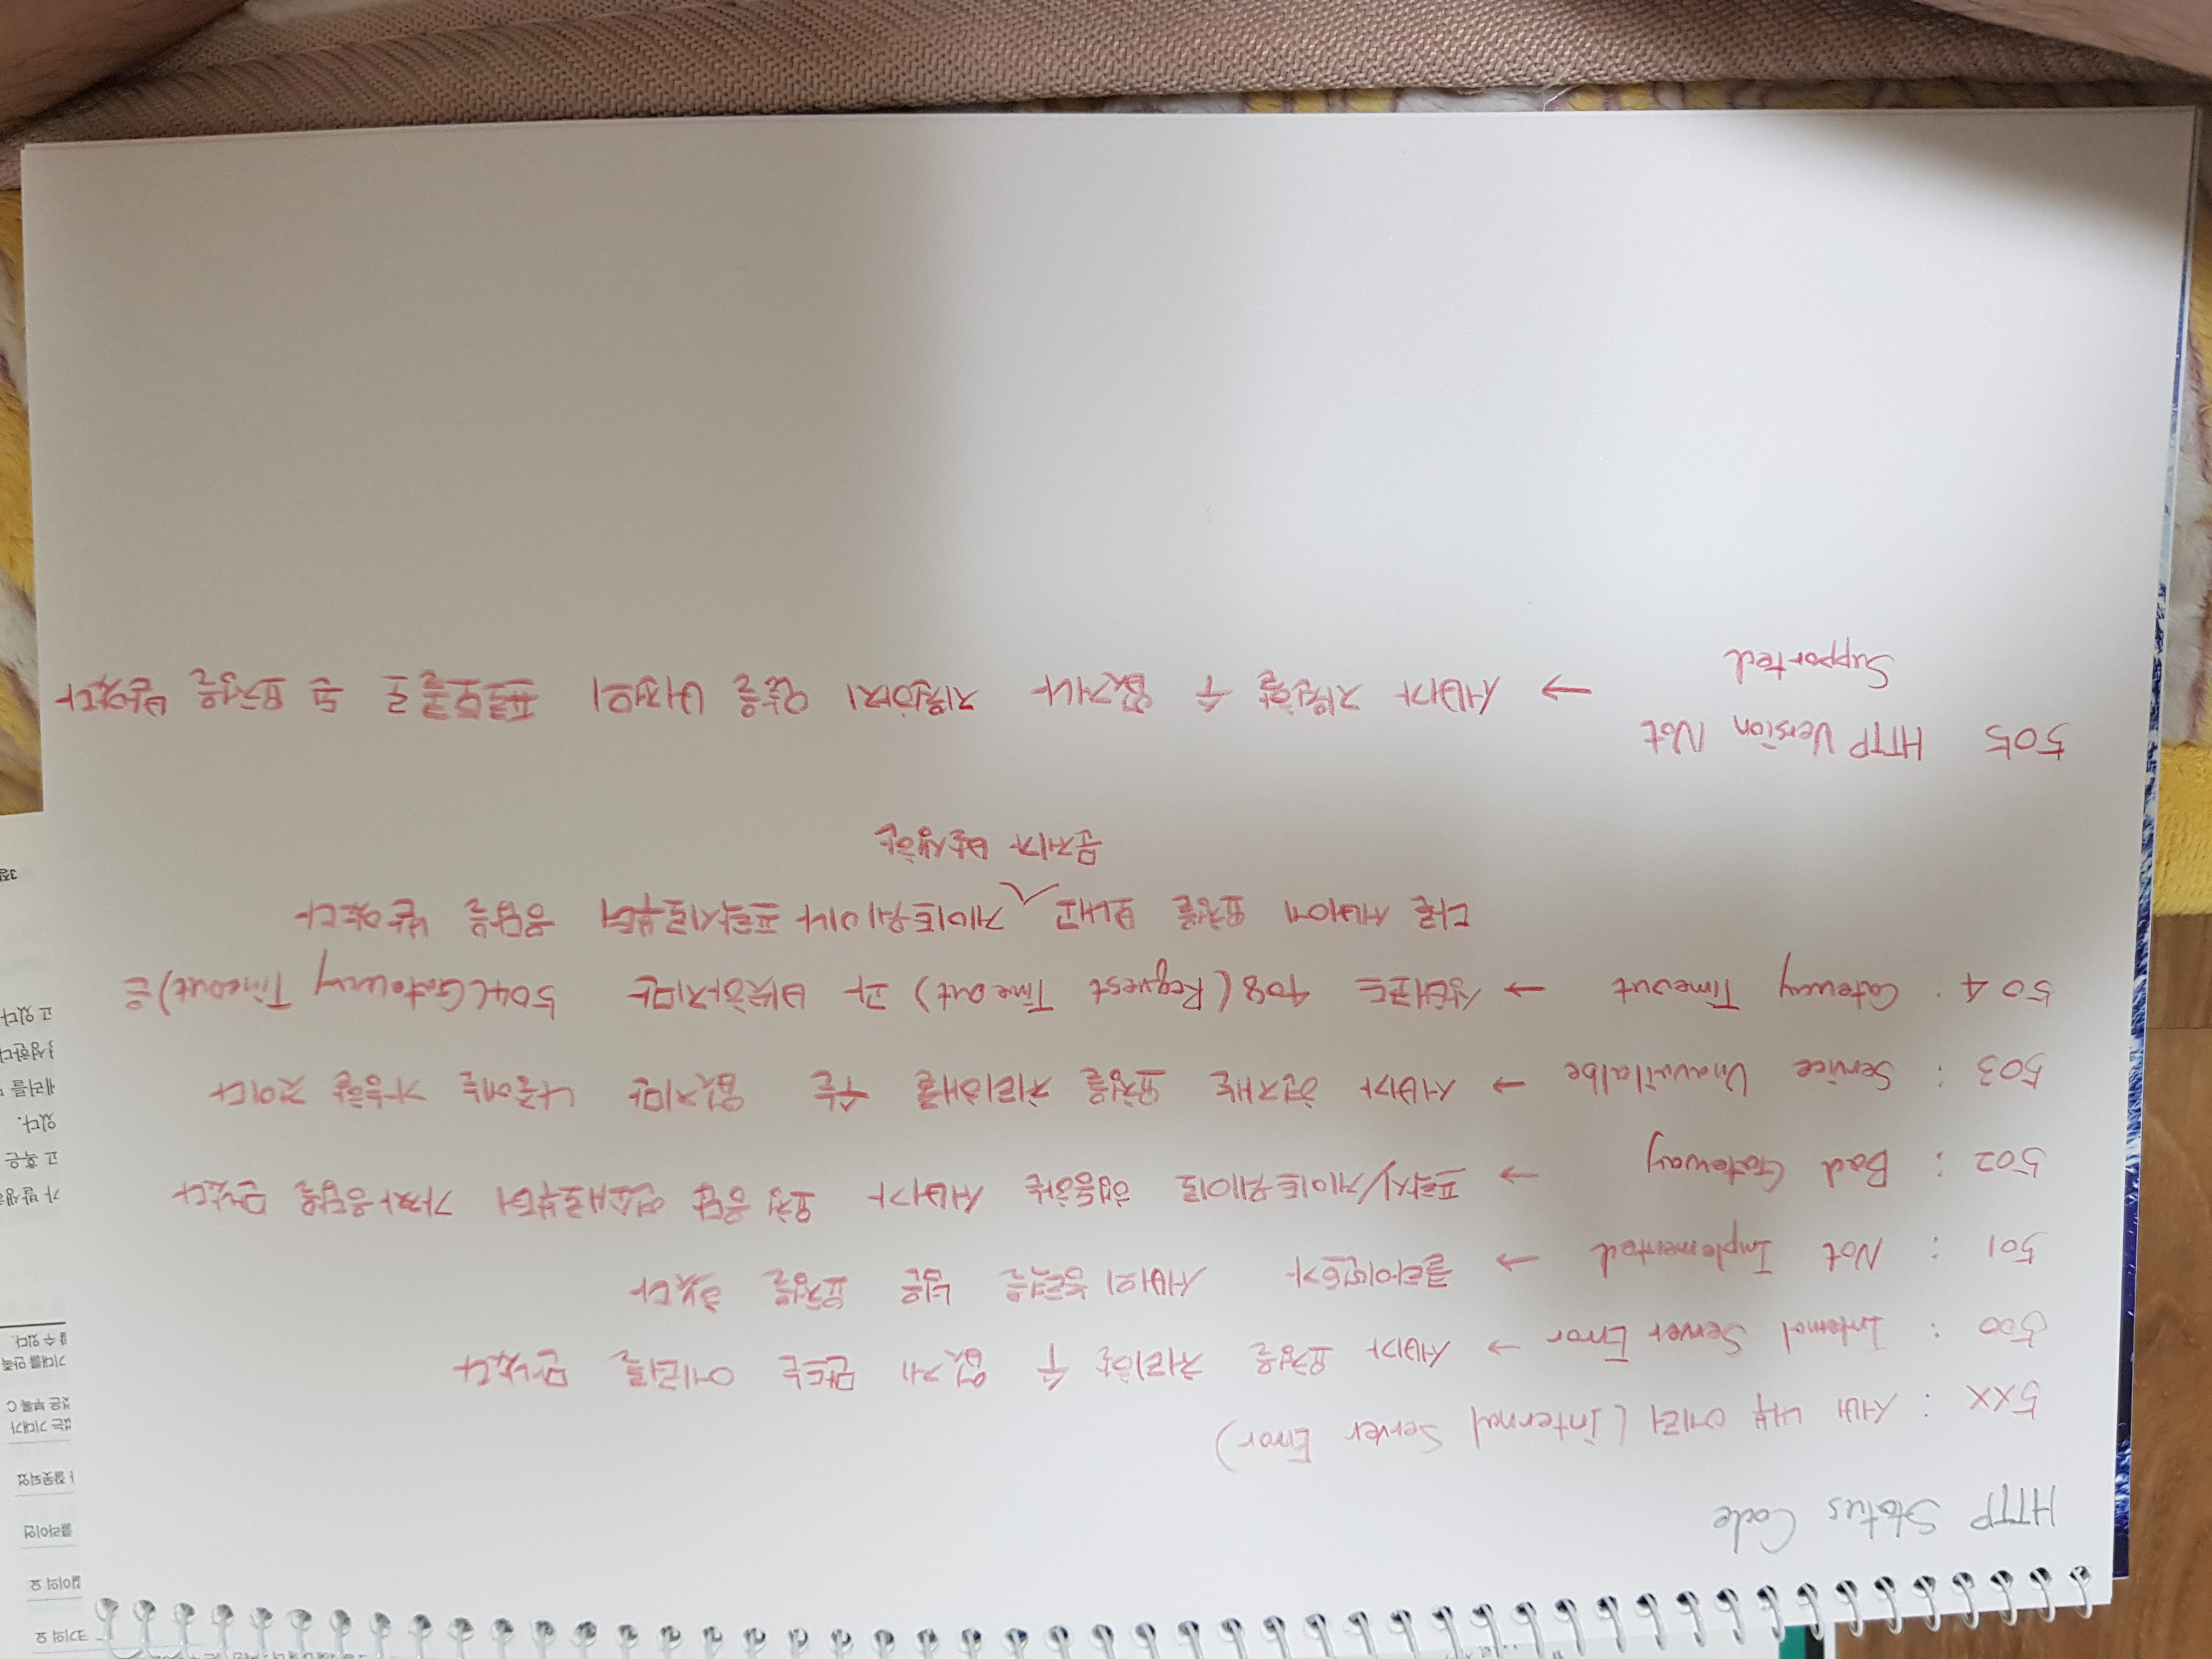 HTTP Status Code
5XX : 서버 내부 에러 (Internal Server Error)
500 : Internal Server Error → 서버가 요청을 처리할 수 없게 만드는 에러를 만났다
501 : Not Implemented → 클라이언트가 서버의 능력을 넘은 요청을 했다
502 : Bad Gateway → 프락시/게이트웨이로 행동하는 서버가 요청 응답 연쇄로부터 가짜 응답을 만났다
503 : Service Unavailalbe → 서버가 현재는 요청을 처리해줄 수는 없지만 나중에는 가능할 것이다
504 : Gateway Timeout → 상태코드 408 (Request Timeout) 과 비슷하지만 504 (Gateway Timeout)은
다른 서버에 요청을 보내고 게이트웨이나 프락시로부터 응답을 받았다
문제가 발생한
505 HTTP Version Not → 서버가 지원할 수 없거나 지원하지 않을 버전의 프로토콜로 된 요청을 받았다
Supported
크기의 요
길이의 요
클라이언
잘못되었
없는 기대가
것은 부록 C
기대를 만족
할 수 있다.
가 발생하
고 혹은
있다.
에러를
성한다
고 있다
3장